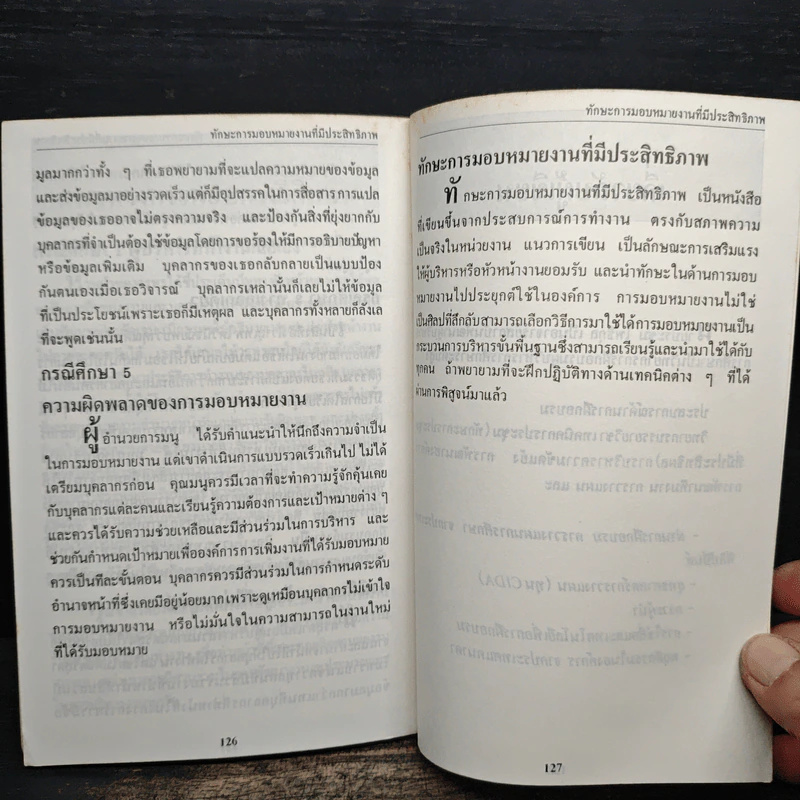 ทักษะการมอบหมายงานที่มีประสิทธิภาพ
มูลมากกว่าทั้ง ๆ ที่เธอพยายามที่จะแปลความหมายของข้อมูล
และส่งข้อมูลมาอย่างรวดเร็ว แต่ก็มีอุปสรรคในการสื่อสาร การแปล
ข้อมูลของเธออาจไม่ตรงความจริง และป้องกันสิ่งที่ยุ่งยากกับ
บุคลากรที่จำเป็นต้องใช้ข้อมูลโดยการขอร้องให้มีการอธิบายปัญหา
หรือข้อมูลเพิ่มเติม บุคลากรของเธอกลับกลายเป็นแบบป้อง
กันตนเองเมื่อเธอวิจารณ์ บุคลากรเหล่านั้นก็เลยไม่ให้ข้อมูล
ที่เป็นประโยชน์เพราะเธอก็มีเหตุผล และบุคลากรทั้งหลายก็ลังเล
ที่จะพูดเช่นนั้น
กรณีศึกษา 5
ความผิดพลาดของการมอบหมายงาน
ผู้อำนวยการมนู ได้รับคำแนะนำให้นึกถึงความจำเป็น
ในการมอบหมายงาน แต่เขาดำเนินการแบบรวดเร็วเกินไป ไม่ได้
เตรียมบุคลากรก่อน คุณมนูควรมีเวลาที่จะทำความรู้จักคุ้นเคย
กับบุคลากรแต่ละคนและเรียนรู้ความต้องการและเป้าหมายต่าง ๆ
และควรได้รับความช่วยเหลือและมีส่วนร่วมในการบริหาร และ
ช่วยกันกำหนดเป้าหมายเพื่อองค์การการเพิ่มงานที่ได้รับมอบหมาย
ควรเป็นทีละขั้นตอน บุคลากรควรมีส่วนร่วมในการกำหนดระดับ
อำนาจหน้าที่ซึ่งเคยมีอยู่น้อยมากเพราะดูเหมือนบุคลากรไม่เข้าใจ
การมอบหมายงาน หรือไม่มั่นใจในความสามารถในงานใหม่
ที่ได้รับมอบหมาย
126
ทักษะการมอบหมายงานที่มีประสิทธิภาพ
ทักษะการมอบหมายงานที่มีประสิทธิภาพ
ทักษะการมอบหมายงานที่มีประสิทธิภาพ เป็นหนังสือ
ที่เขียนขึ้นจากประสบการณ์การทำงาน ตรงกับสภาพความ
เป็นจริงในหน่วยงาน แนวการเขียน เป็นลักษณะการเสริมแรง
ให้ผู้บริหารหรือหัวหน้างานยอมรับ และนำทักษะในด้านการมอบ
หมายงานไปประยุกต์ใช้ในองค์การ การมอบหมายงานไม่ใช่
เป็นศิลปที่ลึกลับสามารถเลือกวิธีการมาใช้ได้การมอบหมายงานเป็น
กระบวนการบริหารขั้นพื้นฐานซึ่งสามารถเรียนรู้และนำมาใช้ได้กับ
ทุกคน ถ้าพยายามที่จะฝึกปฏิบัติทางด้านเทคนิคต่าง ๆ ที่ได้
ผ่านการพิสูจน์มาแล้ว
127